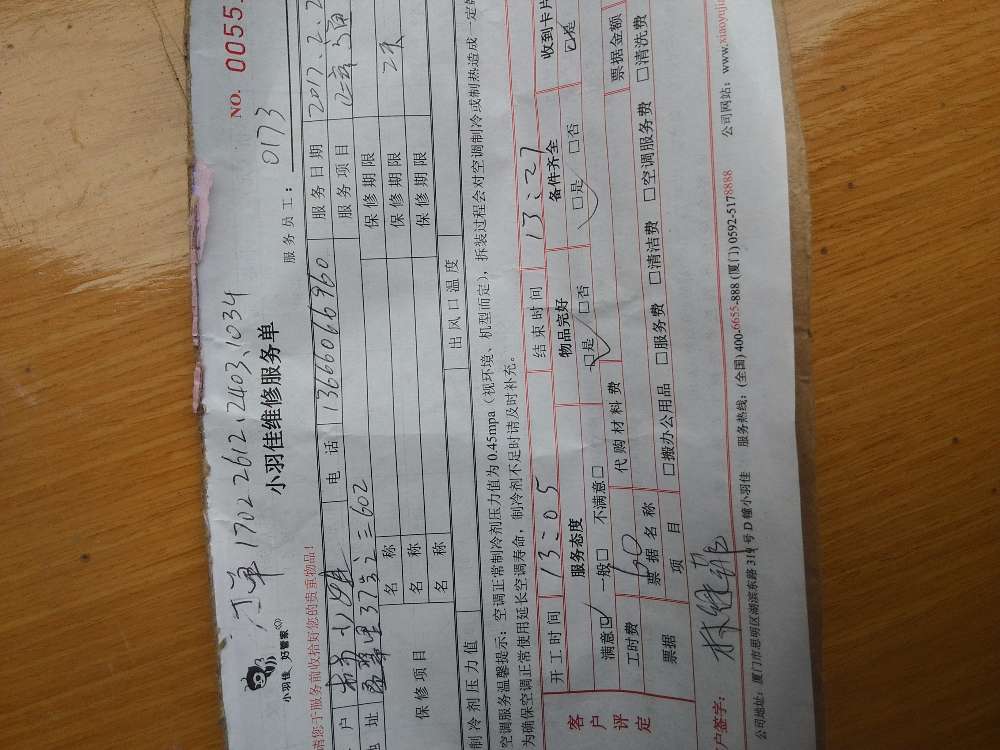 1702 2612.2403.1034
小羽佳 好管家
小羽佳维修服务单
NO. 0055
请您于服务前收拾好您的贵重物品!
服务员工: 0173
户
电话 13660669760
服务日期 2017.2.2
地址 37号之三602
服务项目
保修项目
名称
保修期限 2天
名称
保修期限
名称
保修期限
制冷剂压力值
出风口温度
空调服务温馨提示: 空调正常制冷剂压力值为0.45mpa(视环境、机型而定), 拆装过程会对空调制冷或制热造成一定
为确保空调正常使用延长空调寿命, 制冷剂不足时请及时补充。
客户评定
开工时间 13:05
结束时间 13:27
服务态度
物品完好
备件齐全
收到卡片
满意☑ 一般□ 不满意□
□是 □否
□是 □否
□是
工时费 60
代购材料费
票据金额
票据
票据名称
项目
□搬办公用品 □服务费 □清洁费 □空调服务费 □清洗费
户签字:
公司地址: 厦门市思明区湖滨东路319号D幢小羽佳 服务热线: (全国) 400-6655-888 (厦门) 0592-5178888 公司网站: www.xiaoyujia